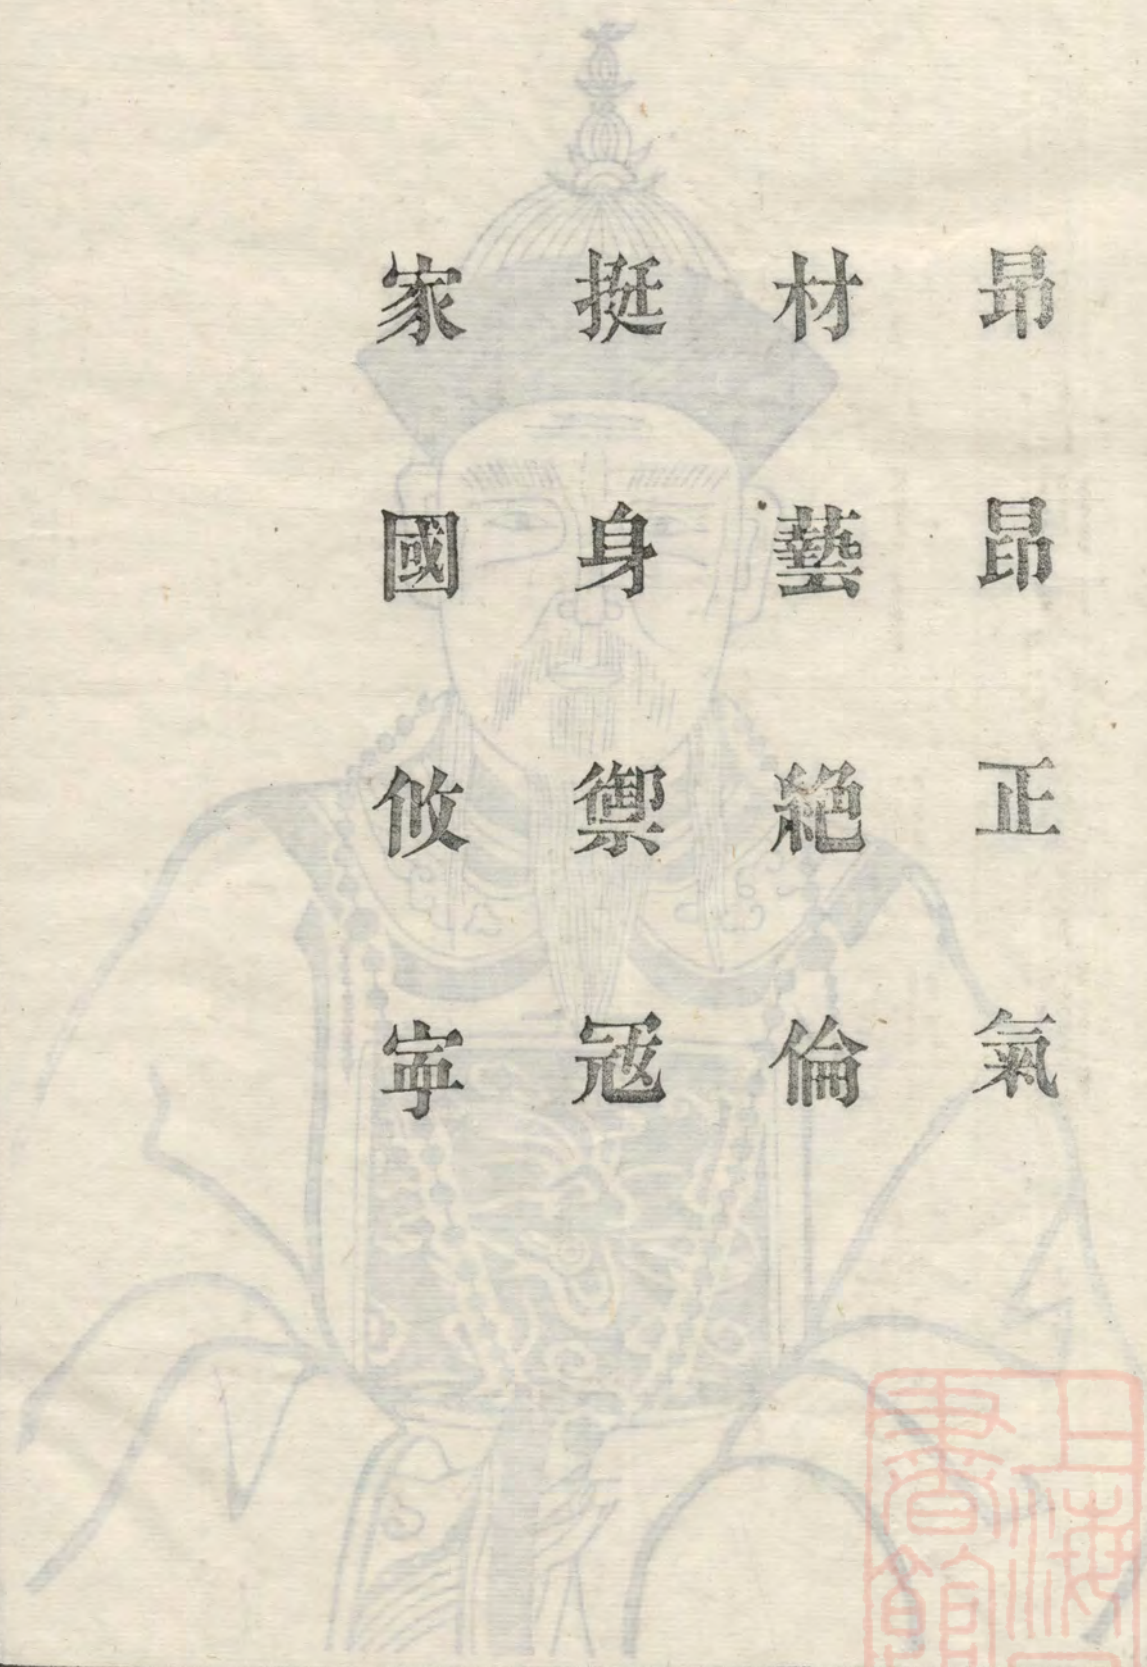 昂昂正氣
材藝絶倫
挺身禦冦
家國攸寧
上海
書館